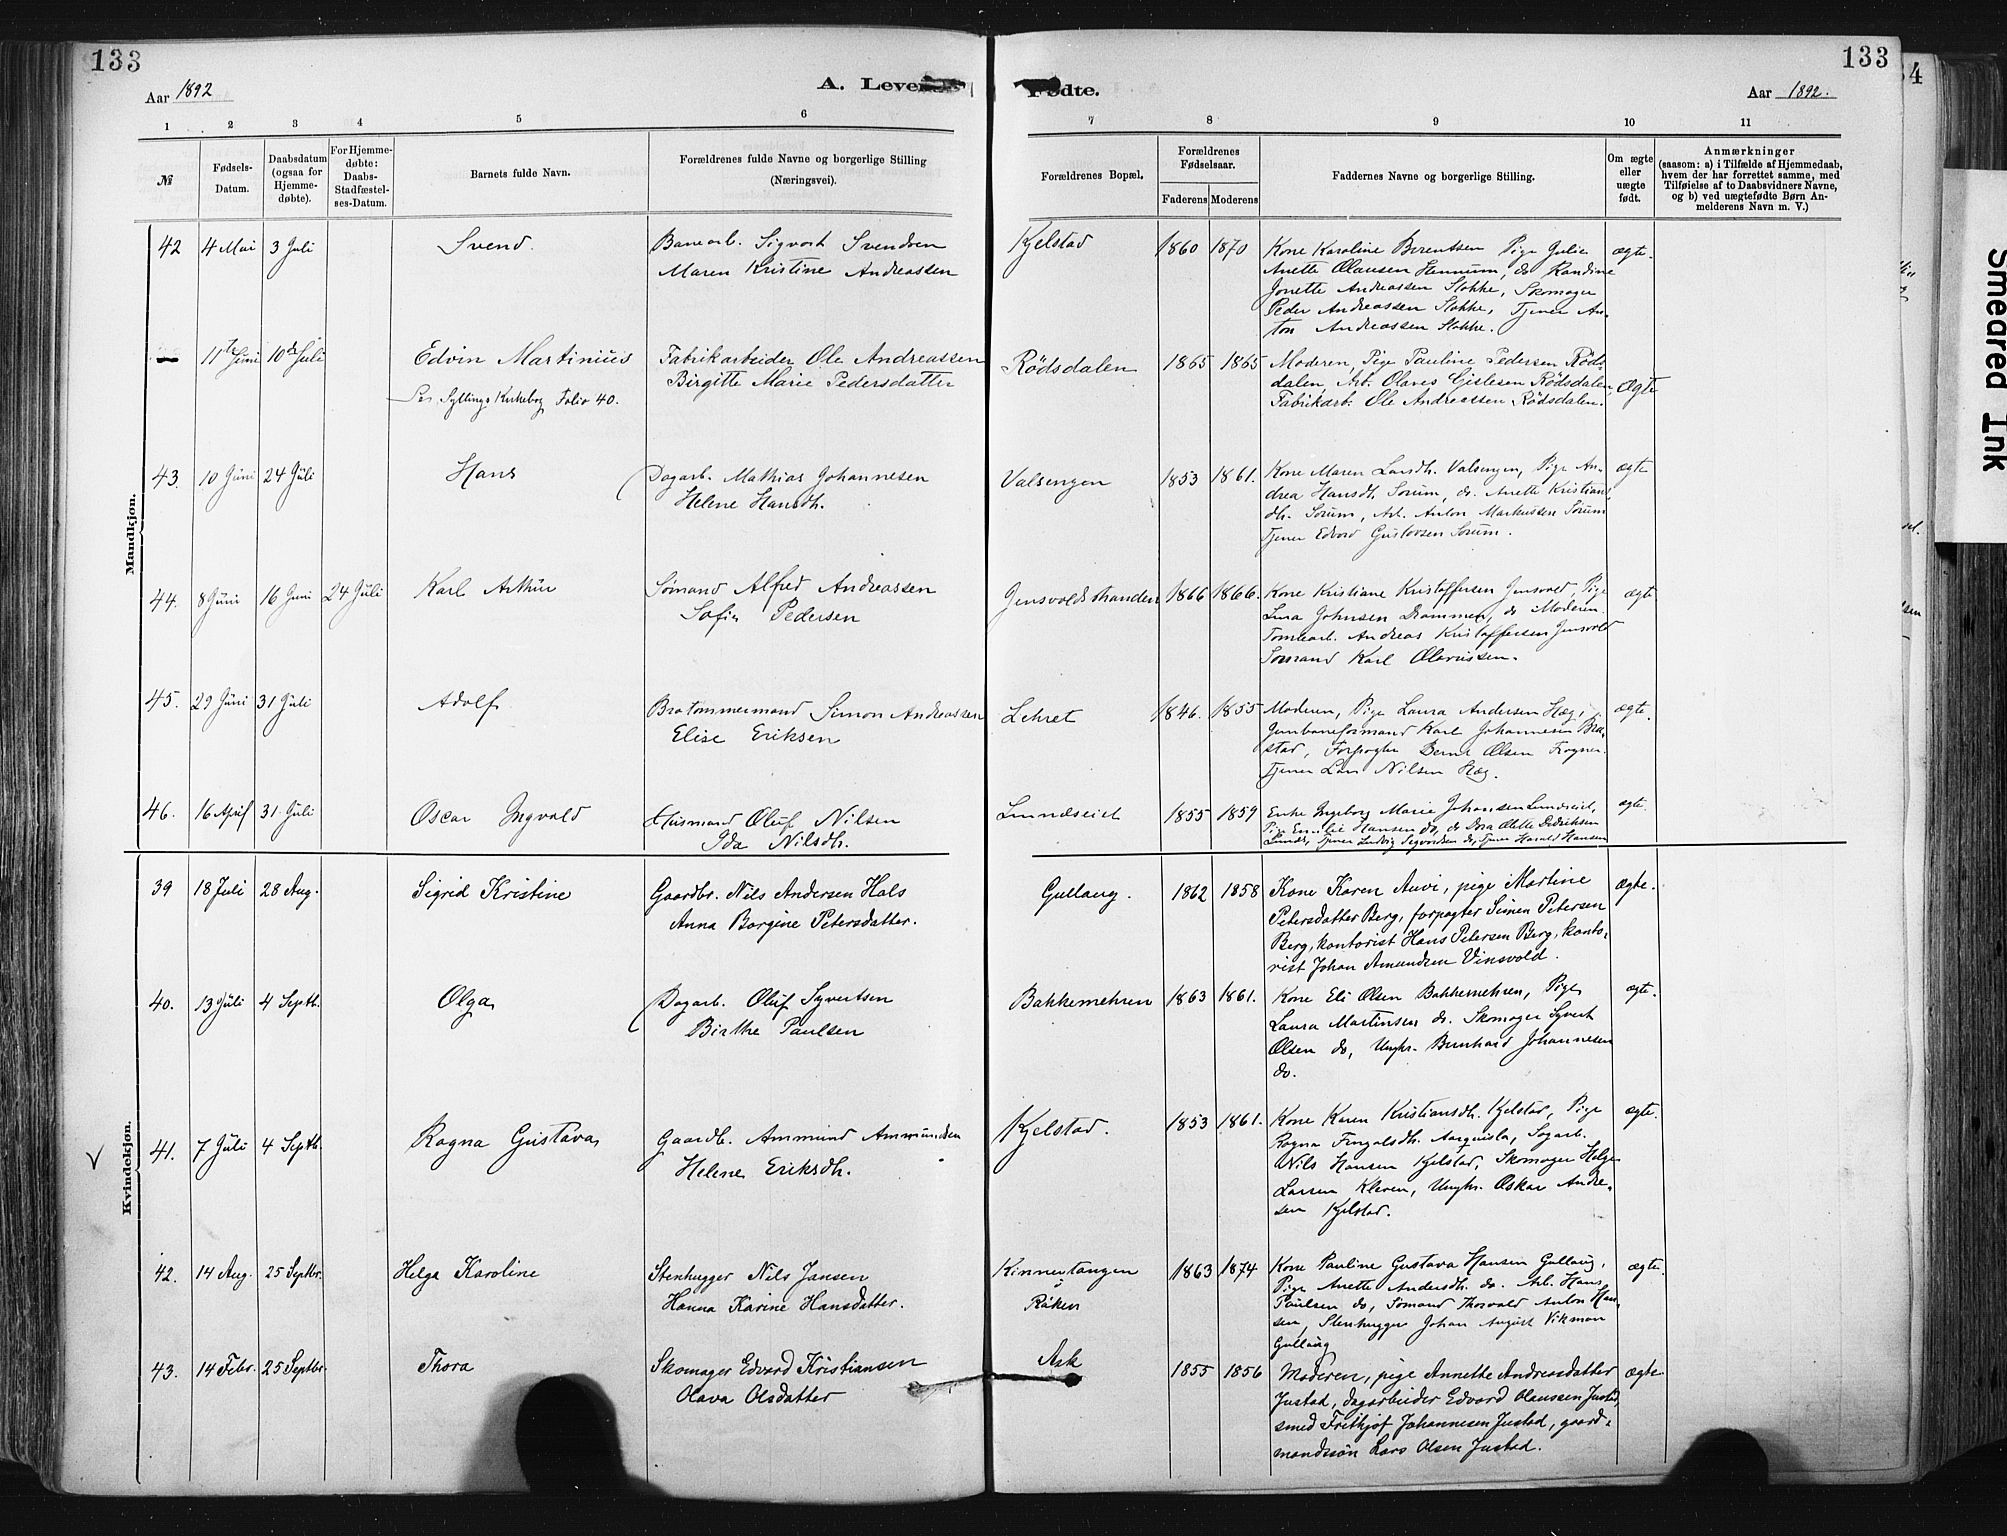 133
133
34
Aar 1892
A. Leve
Fødte.
Aar 1892.
1 2 3 4 5 6 7 8 9 10 11
№
Fødsels-
Datum.
Daabsdatum
(ogsaa for
Hjemme-
døbte).
For Hjemme-
døbte:
Daabs-
Stadfæstel-
ses-Datum.
Barnets fulde Navn.
Forældrenes fulde Navne og borgerlige Stilling
(Næringsvei).
Forældrenes Bopæl.
Forældrenes
Fødselsaar.
Faderens Moderens
Faddernes Navne og borgerlige Stilling.
Om ægte
eller
uægte
født.
Anmærkninger
(saasom: a) i Tilfælde af Hjemmedaab,
hvem der har forrettet samme, med
Tilføielse af to Daabsvidners Navne,
og b) ved uægtefødte Børn An-
melderens Navn m. V.)
Smeared Ink
Mandkjøn.
42 4 Mai 3 Juli Svend. Banearb. Sigvart Svendsen Kjelstad 1860 1870 Kone Karoline Berentsen Pige Julie ægte.
Maren Kristine Andreassen Anette Olausen Hennum, do Randine
Jonette Andreassen Stokke, Skomager
Peder Andreassen Stokke, Tjener An-
ton Andreassen Stokke.
— 11te Juni 10de Juli Edvin Martinius Fabrikarbeider Ole Andreassen Rödsdalen 1865 1865 Moderen, Pige Pauline Pedersen Röds-
Birgitte Marie Pedersdatter dalen, Arb. Olaves Gislesen Rödsdalen, Ægte
Se Syllings Kirkebog Folio 40. Fabrikarb. Ole Andreassen Rödsdalen.
43. 10 Juni 24 Juli Hans Dagarb. Mathias Johannesen Valsengen 1853 1861. Kone Maren Larsdh. Valsengen, Pige An- ægte
Helene Hansdh. drea Hansdh. Sorum, do. Anette Kristian-
dh. Sorum, Arb. Anton Markussen Sorum
Tjener Edvard Gustavsen Sorum.
44. 8 Juni 16 Juni 24 Juli Karl Arthur Sømand Alfred Andreassen Gjensvoldstranden 1866 1866. Kone Kristiane Kristoffersen Gjensvold, Pige ægte
Sofie Pedersen Lina Johnsen Drammen, do Moderen.
Tomtearb. Andreas Kristoffersen Gjensvold
Sømand Karl Olavussen.
45. 29 Juni 31 Juli Adolf Brotømmermand Simon Andreassen Lehret 1846. 1855 Moderen, Pige Laura Andersen Hæg, ægte.
Elise Eriksen Jernbaneformand Karl Johannesen Bra-
stad, Forpagter Bernt Olsen Frogner.
Tjener Lars Nilsen Hæg.
46. 16 April 31 Juli Oscar Ingvald Husmand Oluf Nilsen Lundseiet 1855 1859 Enke Ingeborg Marie Johansen Lundseiet, ægte.
Ida Nilsdh. Pige Emilie Hansen do, do Dora Olette Didriksen
Lunde, Tjener Ludvig Sigvardsen do, Tjener Harald Hansen
Kvindekjøn.
39 18 Juli 28 Aug. Sigrid Kristine Gaardbr. Nils Andersen Hals Gullaug. 1862 1858 Kone Karen Auvi, pige Martine ægte.
Anna Borgine Petersdatter. Petersdatter Berg, forpagter Simen Petersen
Berg, kontorist Hans Petersen Berg, konto-
rist Johan Amundsen Vinsvold.
40. 13 Juli 4 Septb. Olga Dagarb. Oluf Syvertsen Bakkemehren 1863 1861. Kone Eli Olsen Bakkemehren, Pige ægte.
Birthe Paulsen Laura Martinsen do. Skomager Syvert
Olsen do, Ungkr. Bernhard Johannesen
do.
41. 7 Juli 4 Septb. Ragna Gustava Gaardb. Ammund Ammundsen Kjelstad. 1853 1861. Kone Karen Kristiansdh. Kjelstad, Pige ægte.
Helene Eriksdh. Ragna Fingalsdh. Aarquisla, Sagarb.
Nils Hansen Kjelstad, Skomager Helge
Larsen Kleven, Ungkr. Oskar Andre-
sen Kjelstad.
42. 14 Aug. 25 Septbr. Helga Karoline Stenhugger Nils Jansen Kinnertangen 1863 1874 Kone Pauline Gustava Hansen Gullaug, ægte.
Hanna Karine Hansdatter. Röken Pige Anette Andersdh. do. Arb. Hans
Paulsen do, Sømand Thorvald Anton Han-
sen, Stenhugger Johan August Vikman
Gullaug
43. 14 Febr. 25 Septbr. Thora Skomager Edvard Kristiansen Ask 1855 1856 Moderen, pige Annette Andreasdatter ægte
Olava Olsdatter Justad, dagarbeider Edvard Olaussen Justad,
smed Frithjof Johannesen Justad, gaard-
mandssøn Lars Olsen Justad.